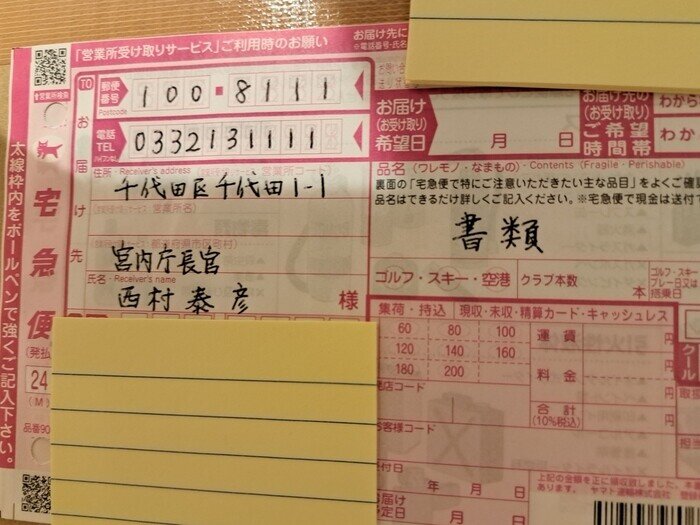 「営業所受け取りサービス」ご利用時のお願い
お届け先に
※電話番号・氏名
営業所検索
TO
お届け先
郵便番号
Postcode
100-8111
電話
TEL
ハイフンなし
0332131111
住所・Receiver's address
千代田区千代田1-1
宮内庁長官
氏名・Receiver's name
西村泰彦 様
お届け
(お受け取り)
希望日
月 日
お届け先の
(お受け取り)
ご希望
時間帯
わから
わか
品名(ワレモノ・なまもの)・Contents (Fragile・Perishable)
裏面の「宅急便で特にご注意いただきたい主な品目」をよくご確認
品名はできるだけ詳しくご記入ください。※宅急便で現金は送付
書類
ゴルフ・スキー・空港
クラブ本数
本
ゴルフ・スキー
プレー日又は
搭乗日
集荷・持込
現収・未収・精算カード・キャッシュレス
60 80 100
120 140 160
180 200
運賃 円
料金 円
合計 円
(10%税込)
クール
発店コード
お客様コード
受付日
年 月 日
お届け
予定日
月 日
上記の金額を正に領収致しました。
ヤマト運輸株式会社
宅急便
(発払
24
(M)
品番90
太線枠内をボールペンで強くご記入下さい。